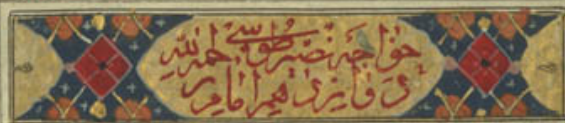 خواجه نصیر طوسی رحمه الله
امام